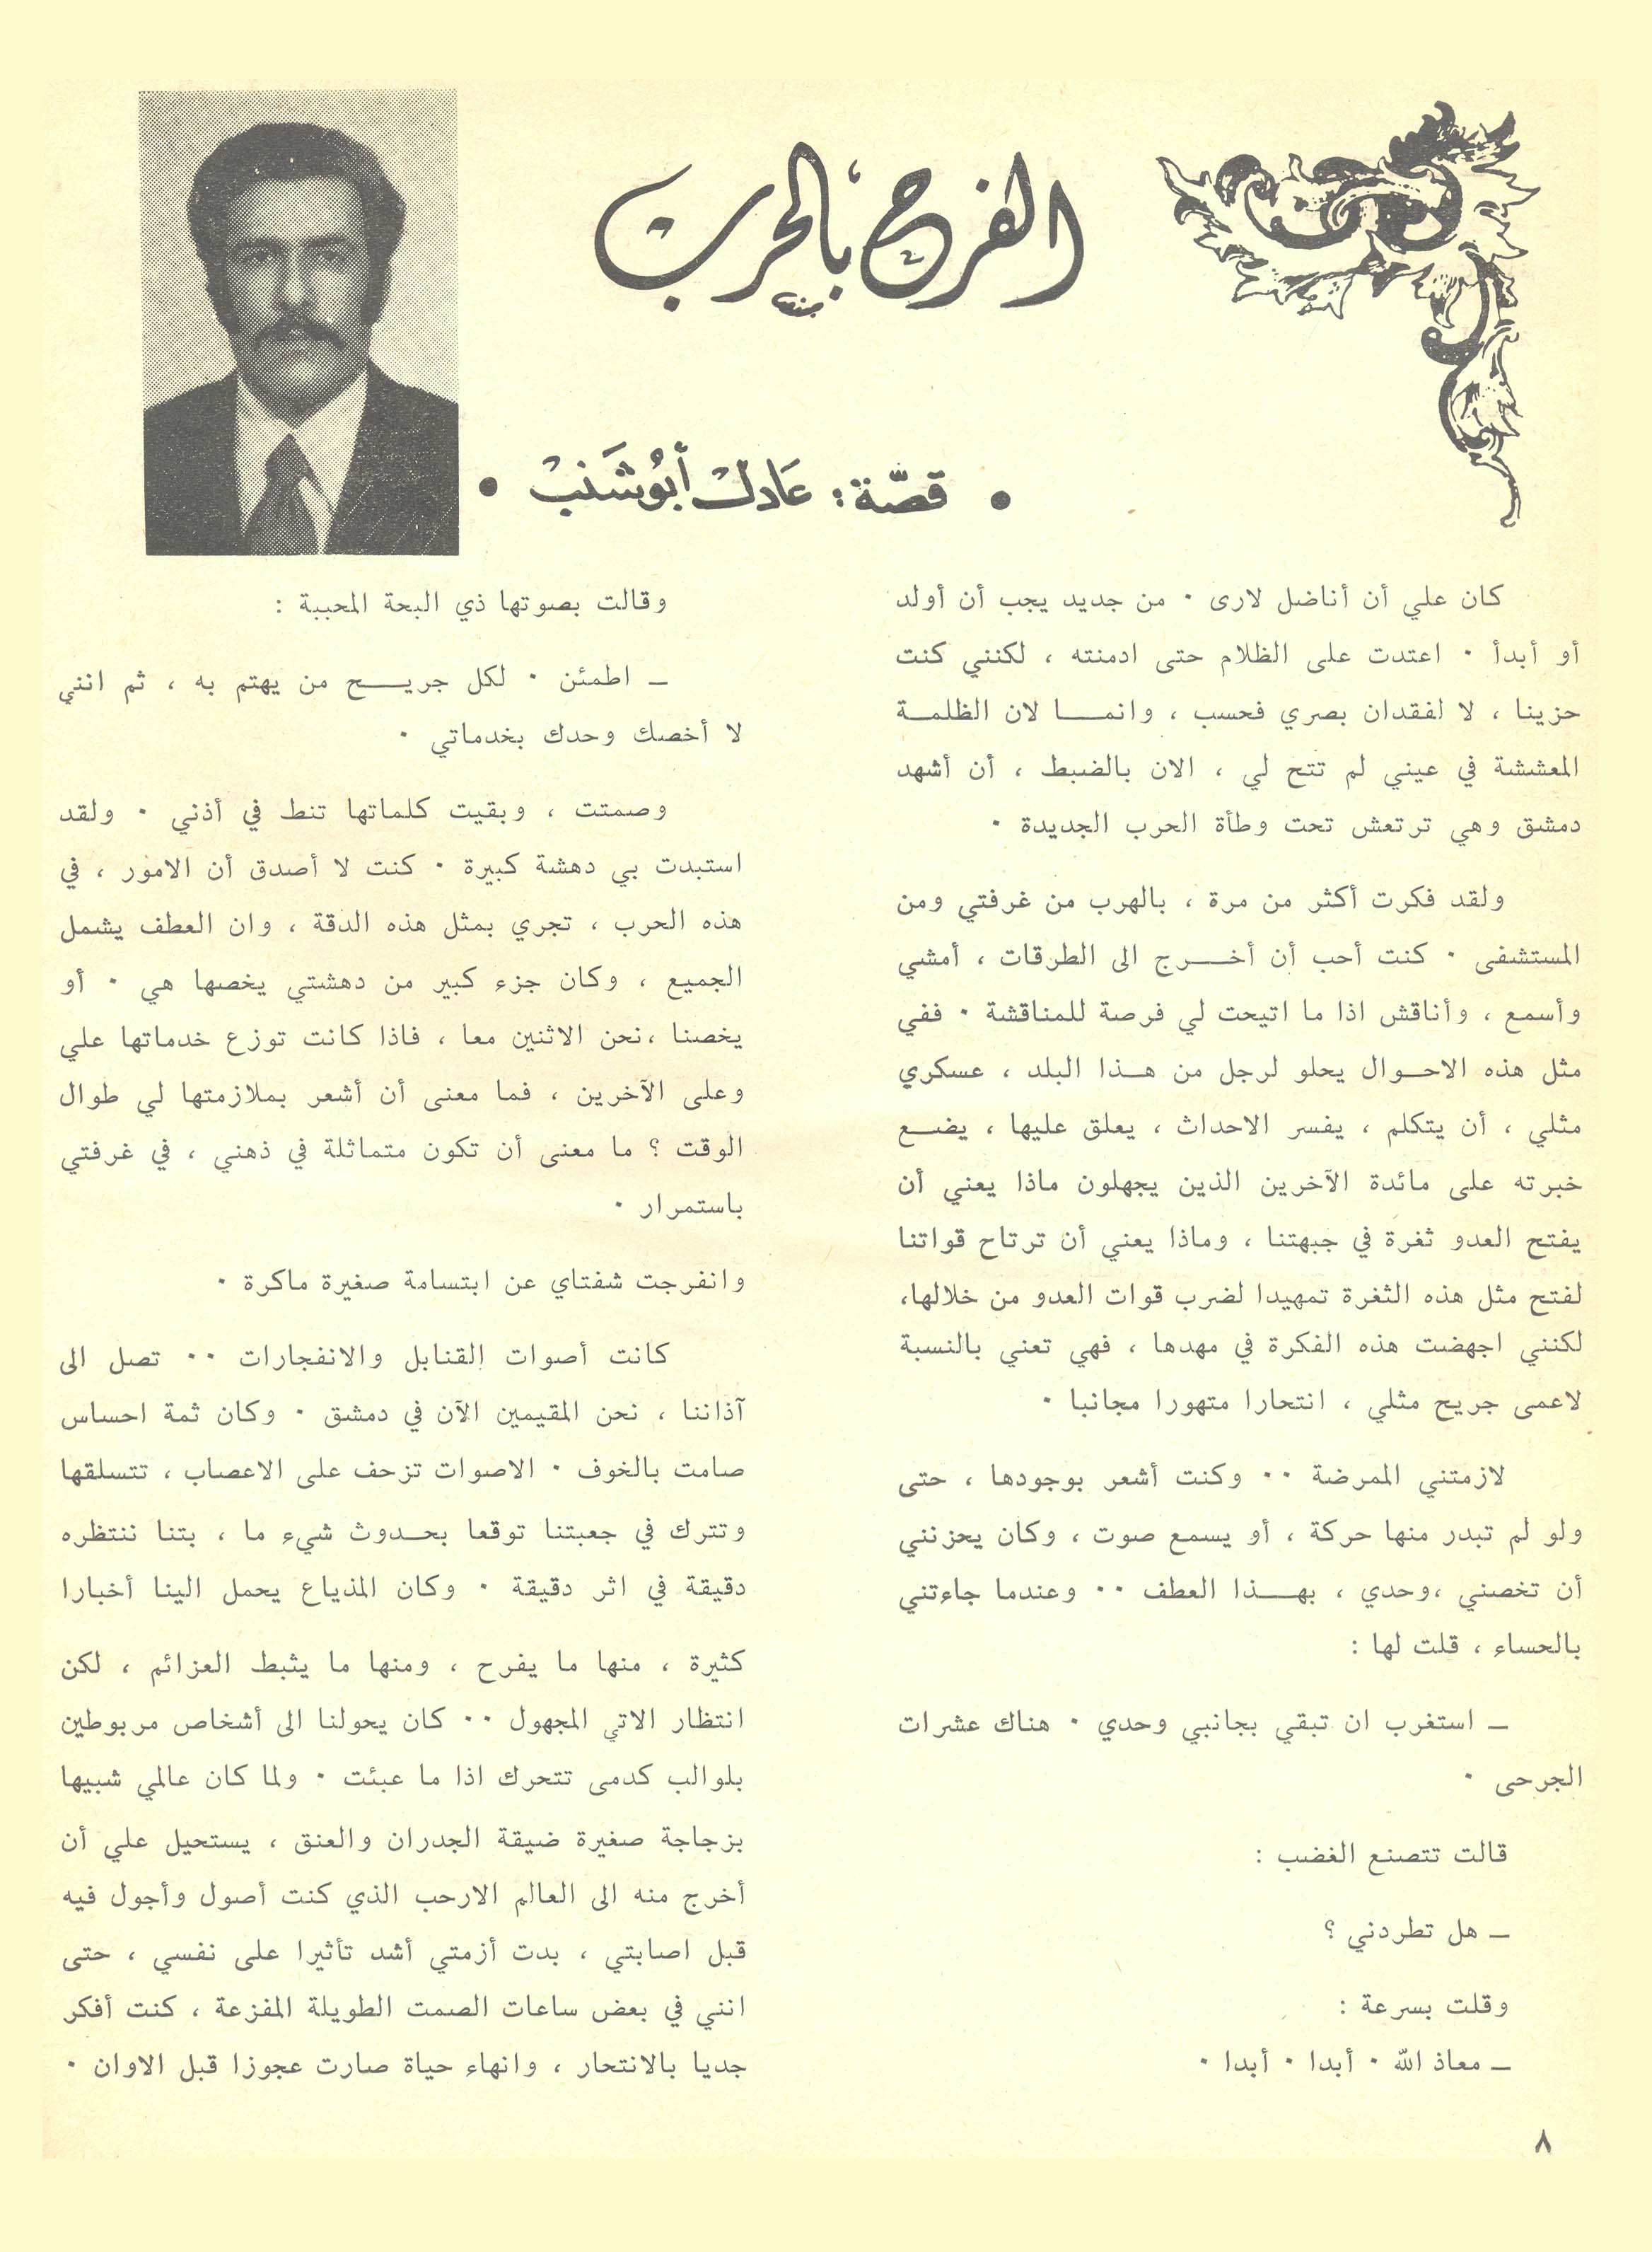 الفرح بالحرب
• قصّة: عَادل أبُو شَنَبْ •
كان علي أن أناضل لارى ٠ من جديد يجب أن أولد
أو أبدأ ٠ اعتدت على الظلام حتى ادمنته ، لكنني كنت
حزينا ، لا لفقدان بصري فحسب ، وانمــا لان الظلمــة
المعششة في عيني لم تتح لي ، الان بالضبط ، أن أشهد
دمشق وهي ترتعش تحت وطأة الحرب الجديدة ٠
ولقد فكرت أكثر من مرة ، بالهرب من غرفتي ومن
المستشفى ٠ كنت أحب أن أخــرج الى الطرقات ، أمشي
وأسمع ، وأناقش اذا ما اتيحت لي فرصة للمناقشة ٠ ففي
مثل هذه الاحــوال يحلو لرجل من هــذا البلد ، عسكري
مثلي ، أن يتكلم ، يفسر الاحداث ، يعلق عليها ، يضــع
خبرته على مائدة الآخرين الذين يجهلون ماذا يعني أن
يفتح العدو ثغرة في جبهتنا ، وماذا يعني أن ترتاح قواتنا
لفتح مثل هذه الثغرة تمهيدا لضرب قوات العدو من خلالها،
لكنني اجهضت هذه الفكرة في مهدها ، فهي تعني بالنسبة
لاعمى جريح مثلي ، انتحارا متهورا مجانبا ٠
لازمتني الممرضة ٠٠ وكنت أشعر بوجودها ، حتى
ولو لم تبدر منها حركة ، أو يسمع صوت ، وكان يحزنني
أن تخصني ،وحدي ، بهــذا العطف ٠٠ وعندما جاءتني
بالحساء ، قلت لها :
ــ استغرب ان تبقي بجانبي وحدي ٠ هناك عشرات
الجرحى ٠
قالت تتصنع الغضب :
ــ هل تطردني ؟
وقلت بسرعة :
ــ معاذ الله ٠ أبدا ٠ أبدا ٠
وقالت بصوتها ذي البحة المحببة :
ــ اطمئن ٠ لكل جريــح من يهتم به ، ثم انني
لا أخصك وحدك بخدماتي ٠
وصمتت ، وبقيت كلماتها تنط في أذني ٠ ولقد
استبدت بي دهشة كبيرة ٠ كنت لا أصدق أن الامور ، في
هذه الحرب ، تجري بمثل هذه الدقة ، وان العطف يشمل
الجميع ، وكان جزء كبير من دهشتي يخصها هي ٠ أو
يخصنا ،نحن الاثنين معا ، فاذا كانت توزع خدماتها علي
وعلى الآخرين ، فما معنى أن أشعر بملازمتها لي طوال
الوقت ؟ ما معنى أن تكون متماثلة في ذهني ، في غرفتي
باستمرار ٠
وانفرجت شفتاي عن ابتسامة صغيرة ماكرة ٠
كانت أصوات القنابل والانفجارات ٠٠ تصل الى
آذاننا ، نحن المقيمين الآن في دمشق ٠ وكان ثمة احساس
صامت بالخوف ٠ الاصوات تزحف على الاعصاب ، تتسلقها
وتترك في جعبتنا توقعا بحــدوث شيء ما ، بتنا ننتظره
دقيقة في اثر دقيقة ٠ وكان المذياع يحمل الينا أخبارا
كثيرة ، منها ما يفرح ، ومنها ما يثبط العزائم ، لكن
انتظار الاتي المجهول ٠٠ كان يحولنا الى أشخاص مربوطين
بلوالب كدمى تتحرك اذا ما عبئت ٠ ولما كان عالمي شبيها
بزجاجة صغيرة ضيقة الجدران والعنق ، يستحيل علي أن
أخرج منه الى العالم الارحب الذي كنت أصول وأجول فيه
قبل اصابتي ، بدت أزمتي أشد تأثيرا على نفسي ، حتى
انني في بعض ساعات الصمت الطويلة المفزعة ، كنت أفكر
جديا بالانتحار ، وانهاء حياة صارت عجوزا قبل الاوان ٠
٨